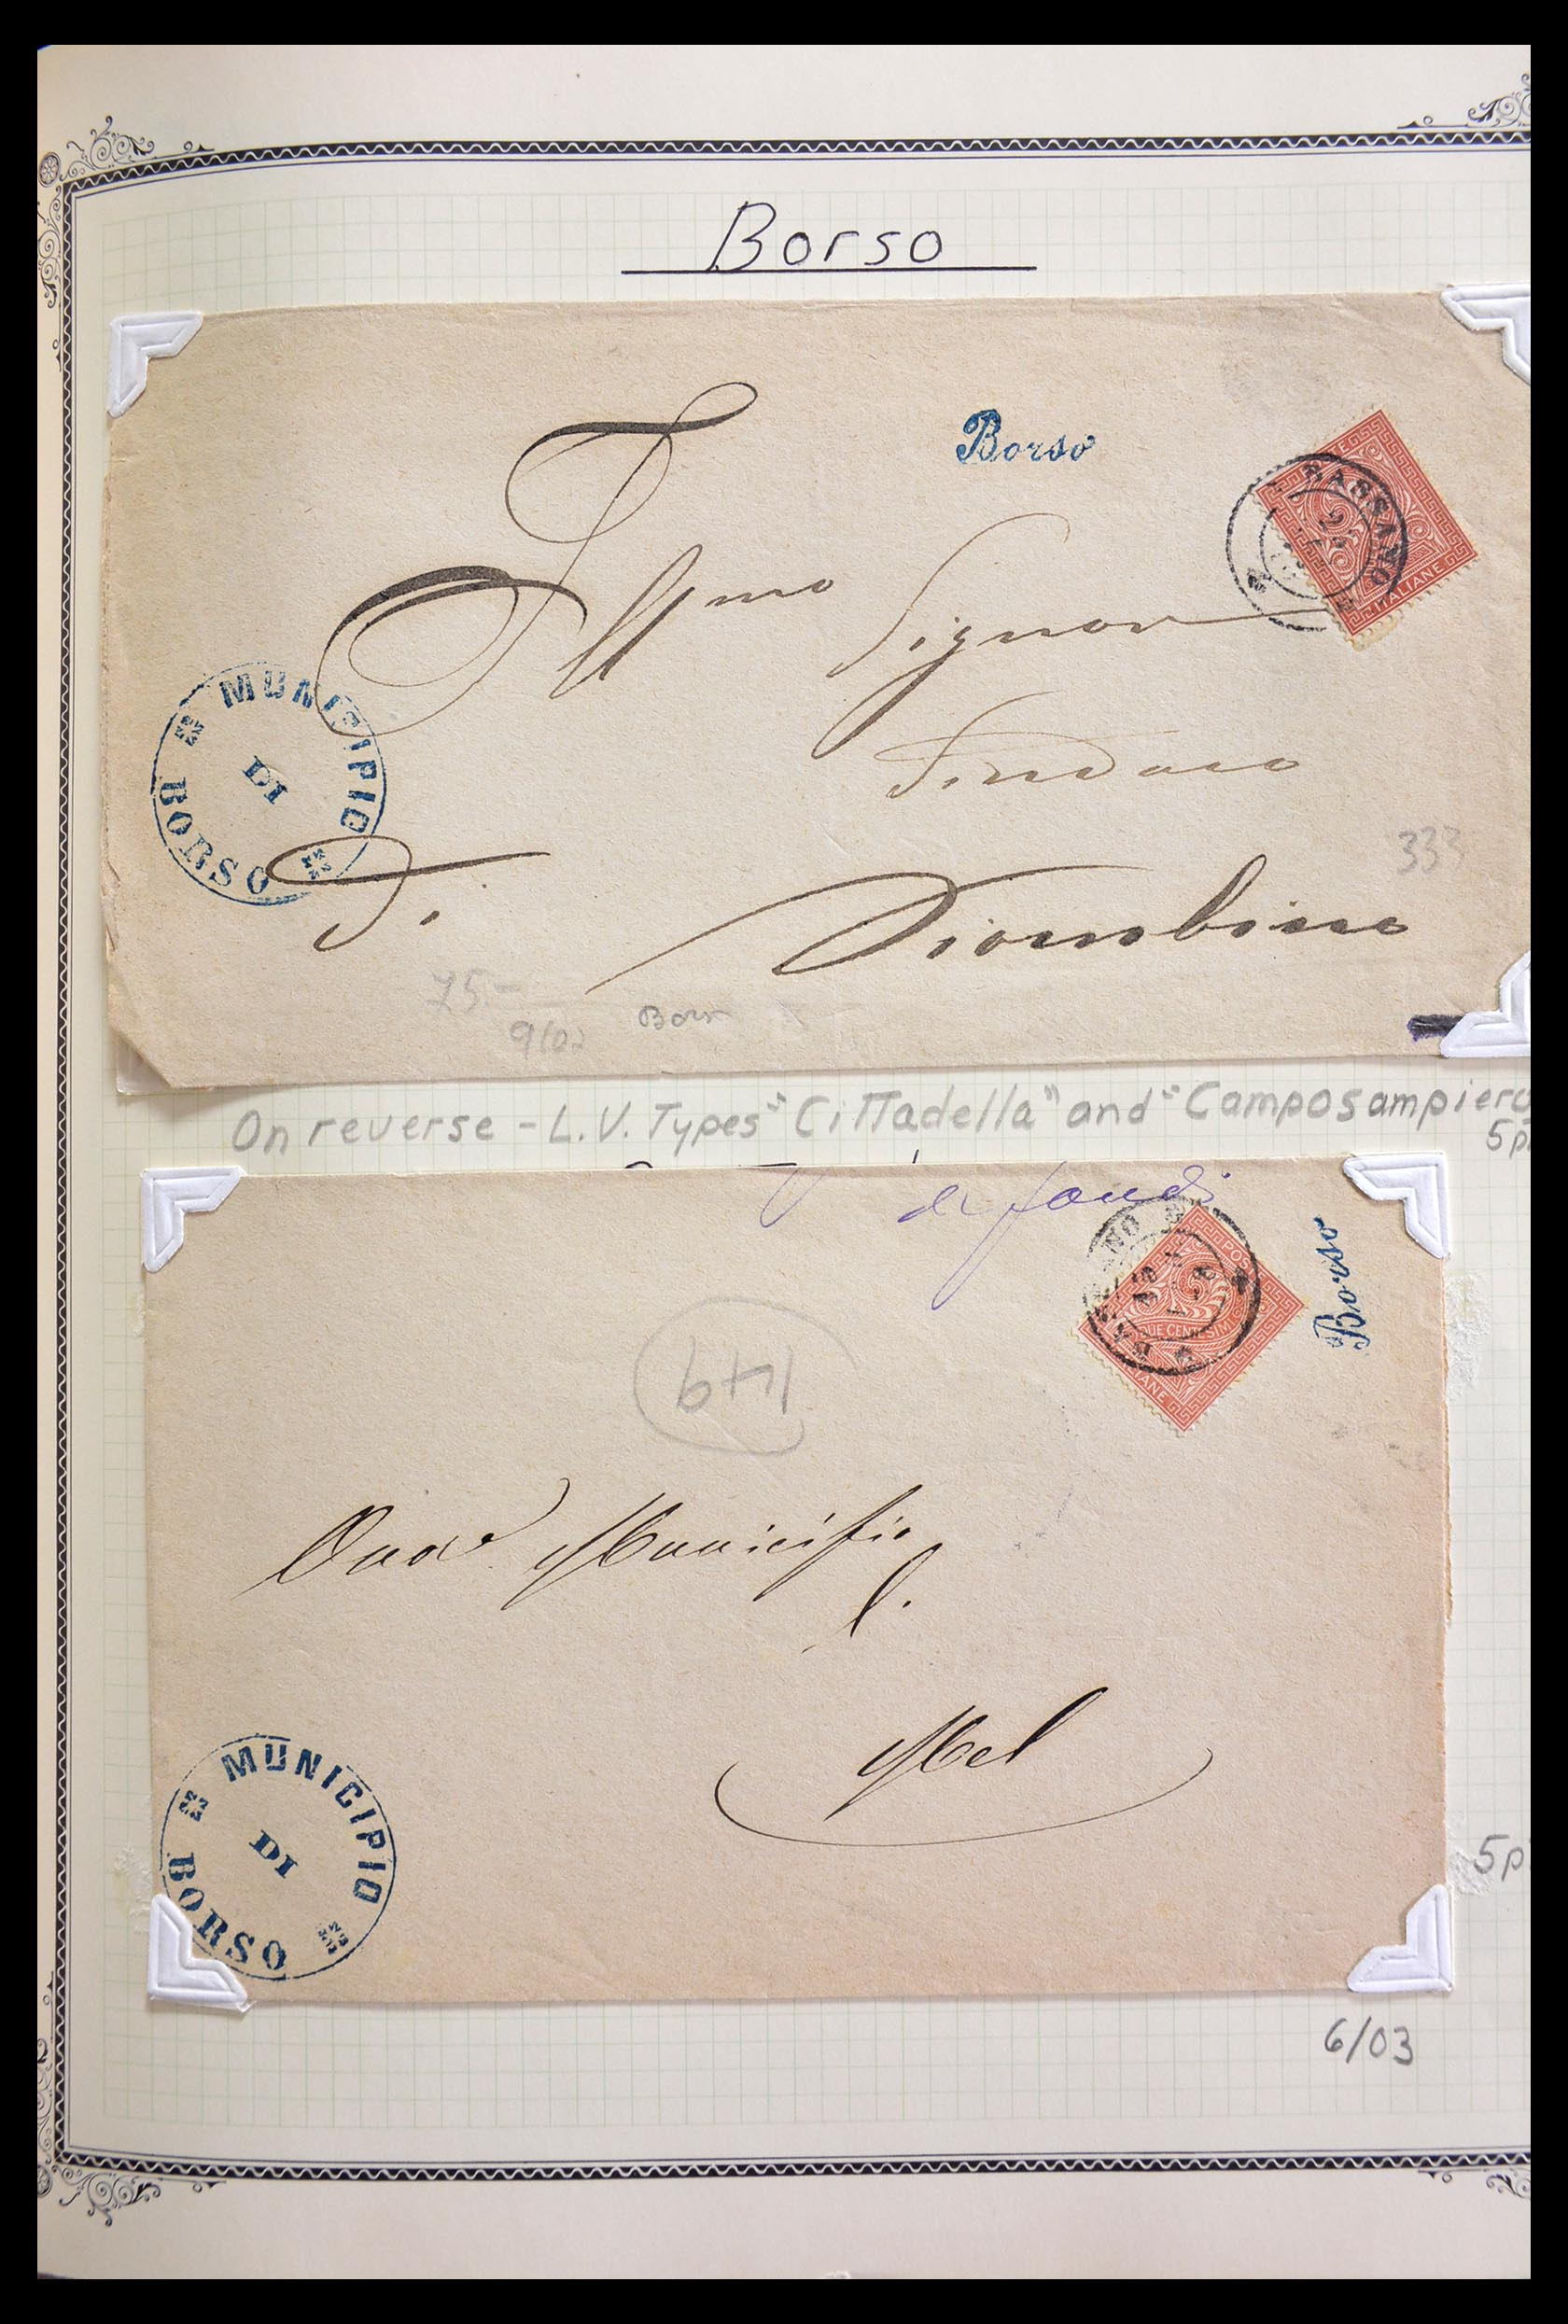 Borso
Borso
BASSANO
ITALIANE
Ill mo Signor
Sindaco
MUNICIPIO
DI
BORSO
333
di Piombino
75-
9/02
On reverse - L.V. Types "Cittadella" and "Camposampiero
5p
Borso
POS
CENTESIMI
149
Municipio
Mel
MUNICIPIO
DI
BORSO
5p
6/03